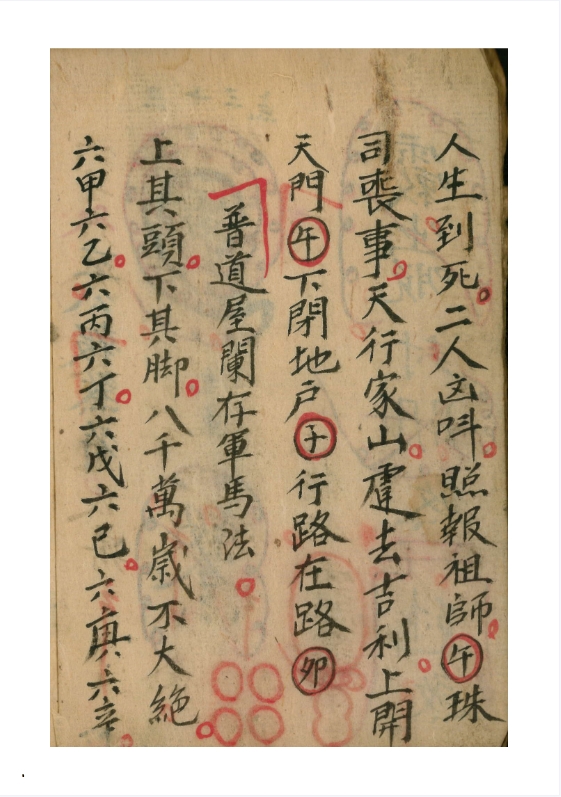 人生到死二人凶呌照報祖師午珠
司喪事天行家山䖏去吉利上開
天門午下閉地户子行路在路卯
普道屋闌存軍馬法
上其頭下其脚八千萬歲不大絶
六甲六乙六丙六丁六戊六己六庚六辛